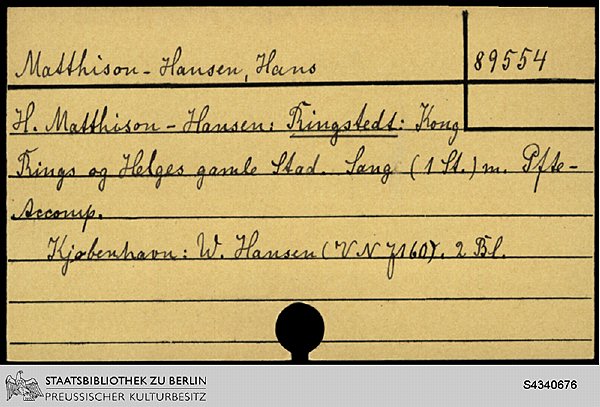 Matthison-Hansen, Hans
89554
H. Matthison-Hansen: Ringstedt: Kong
Rings og Helges gamle Stad. Sang (1 St.) m. Pfte-
Accomp.
Kjøbenhavn: W. Hansen (VN 7160). 2 Bl.
STAATSBIBLIOTHEK ZU BERLIN
PREUSSISCHER KULTURBESITZ
S4340676